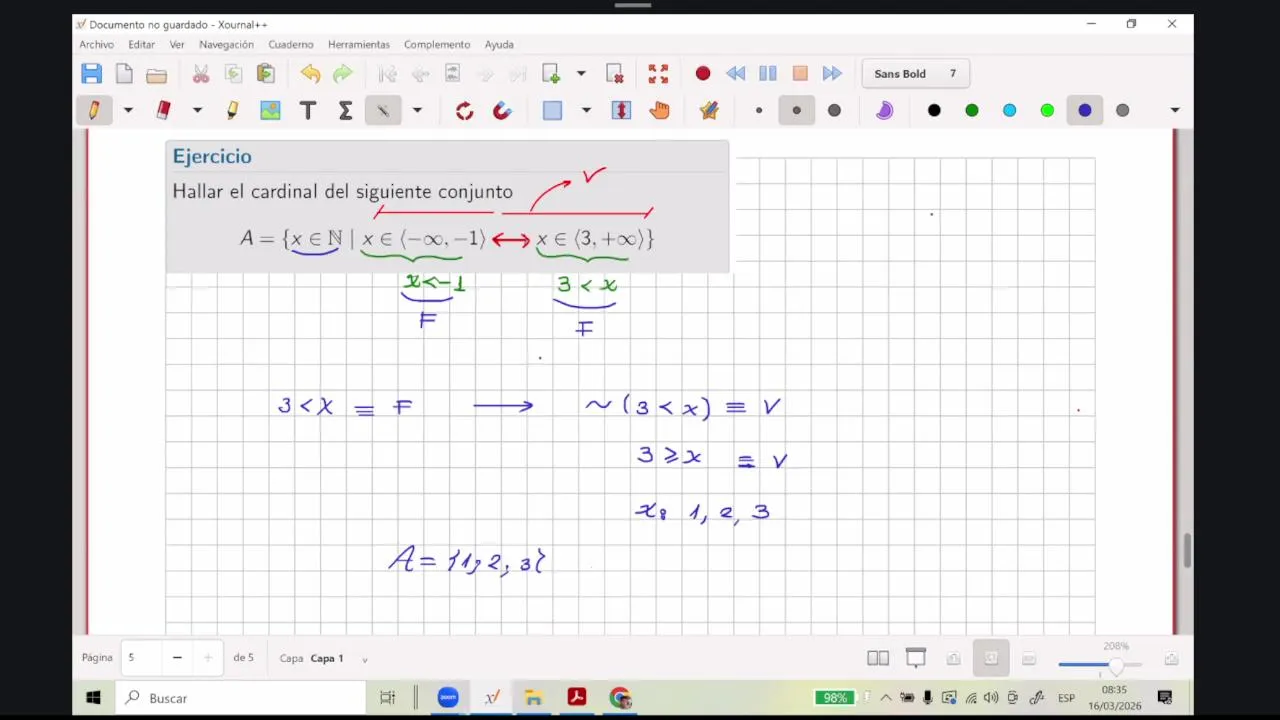 Documento no guardado - Xournal++
Archivo Editar Ver Navegación Cuaderno Herramientas Complemento Ayuda
Sans Bold 7
Ejercicio
Hallar el cardinal del siguiente conjunto
V
A = {x ∈ ℕ | x ∈ ⟨−∞, −1⟩ ↔ x ∈ ⟨3, +∞⟩}
x < -1 3 < x
F F
3 < x ≡ F → ~ (3 < x) ≡ V
3 ≥ x ≡ V
x: 1, 2, 3
A = {1, 2, 3}
Página 5 de 5 Capa Capa 1 208%
Buscar
zoom
98%
ESP
08:35
16/03/2026